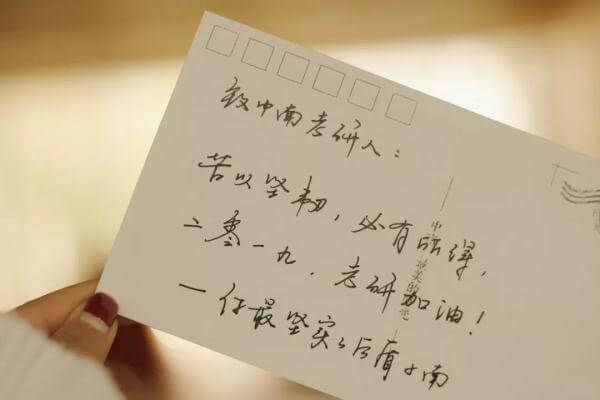 致中南考研人：
苦以坚韧，必有所得，
二零一九，考研加油！
—你最坚实后盾南
最美的